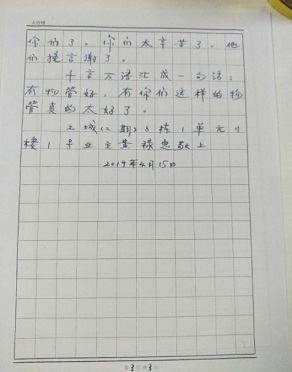 你们了。你们太辛苦了。他
们接言谢了。
千言万语汇成一句话:
有物管好,有你们这样的物
管真的太好了。
上城(二期)8栋1单元11
楼1号业主黄禄忠敬上
2019年4月15日
第3页共3页